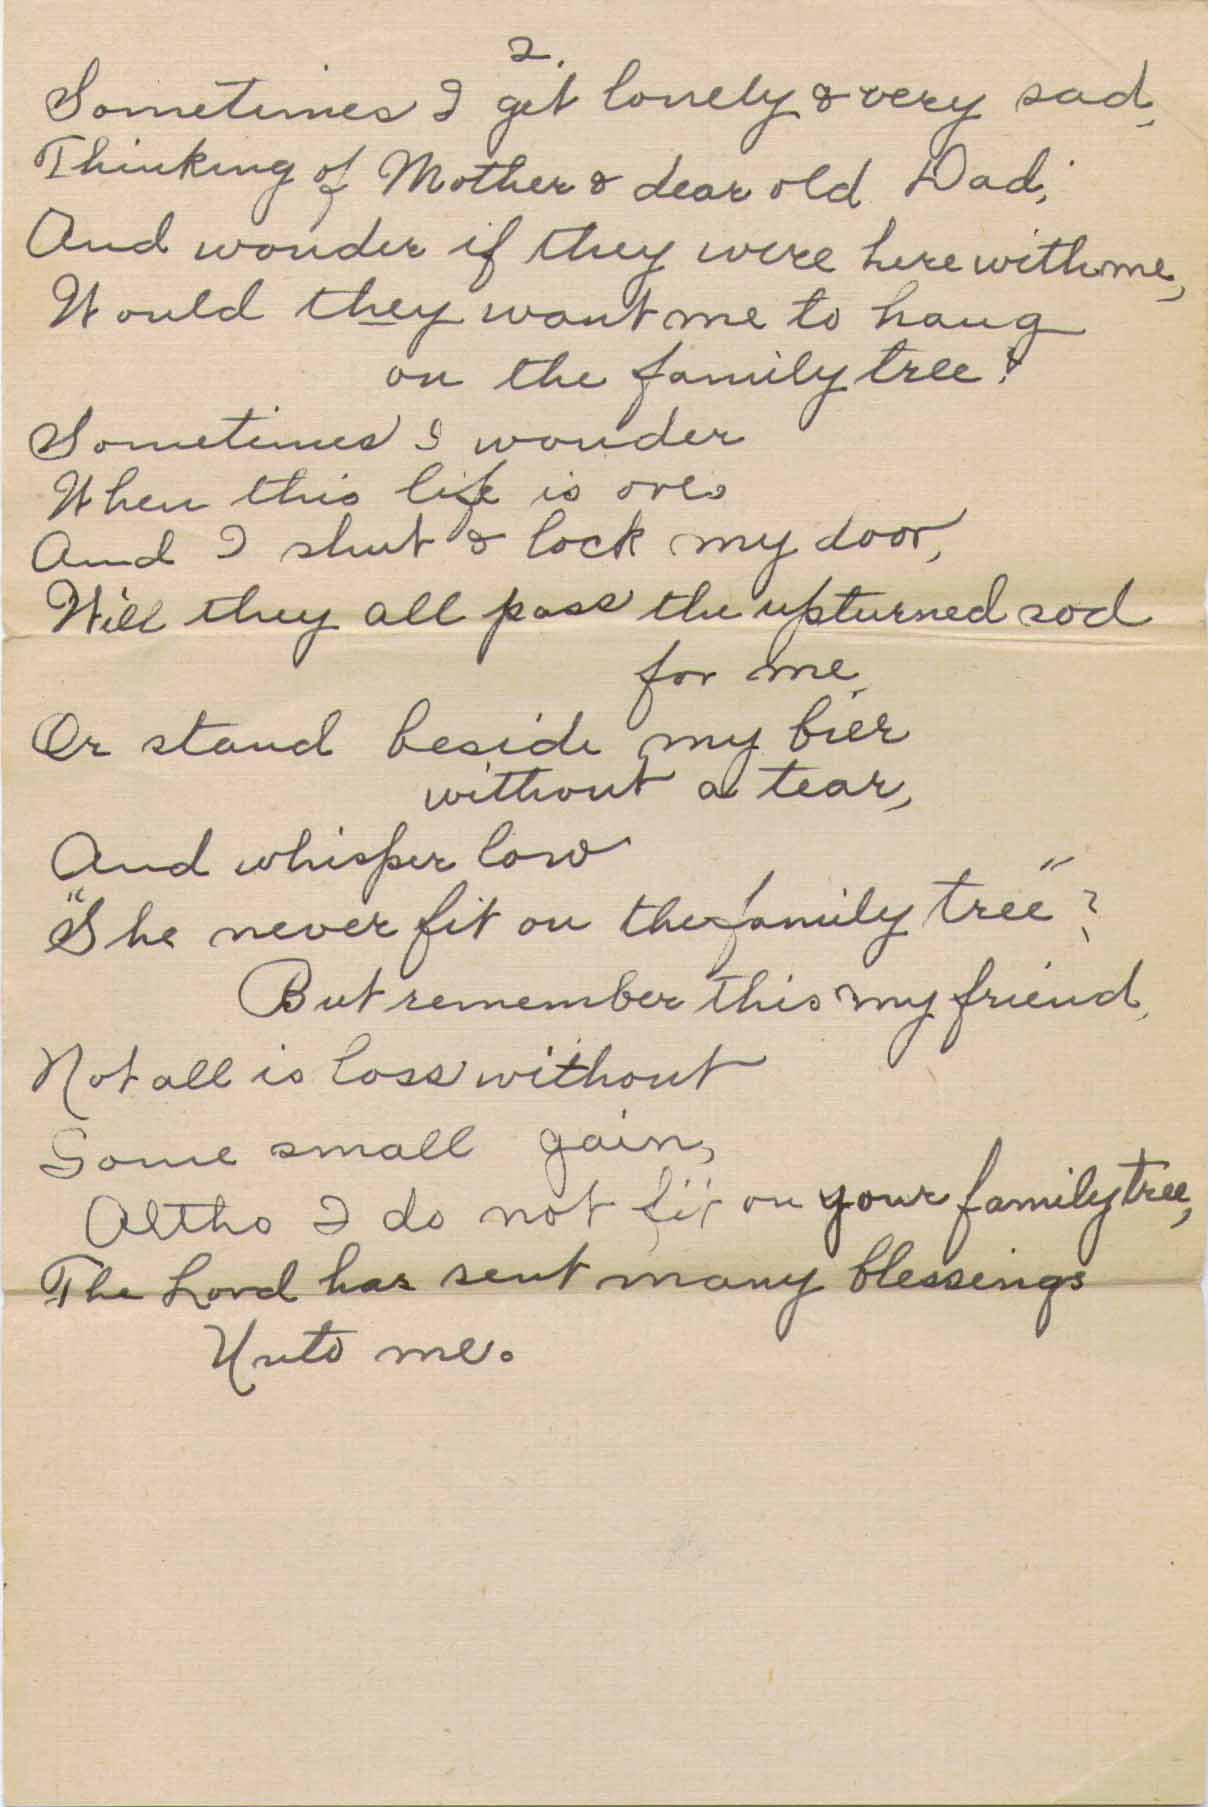 2.
Sometimes I get lonely & very sad,
Thinking of Mother & dear old Dad,
And wonder if they were here with me,
Would they want me to hang
on the family tree?
Sometimes I wonder
When this life is over
And I shut & lock my door,
Will they all pass the upturned sod
for me
Or stand beside my bier
without a tear,
And whisper low
"She never fit on the family tree"?
But remember this my friend,
Not all is loss without
Some small gain,
Altho I do not fit on your family tree,
The Lord has sent many blessings
Unto me.